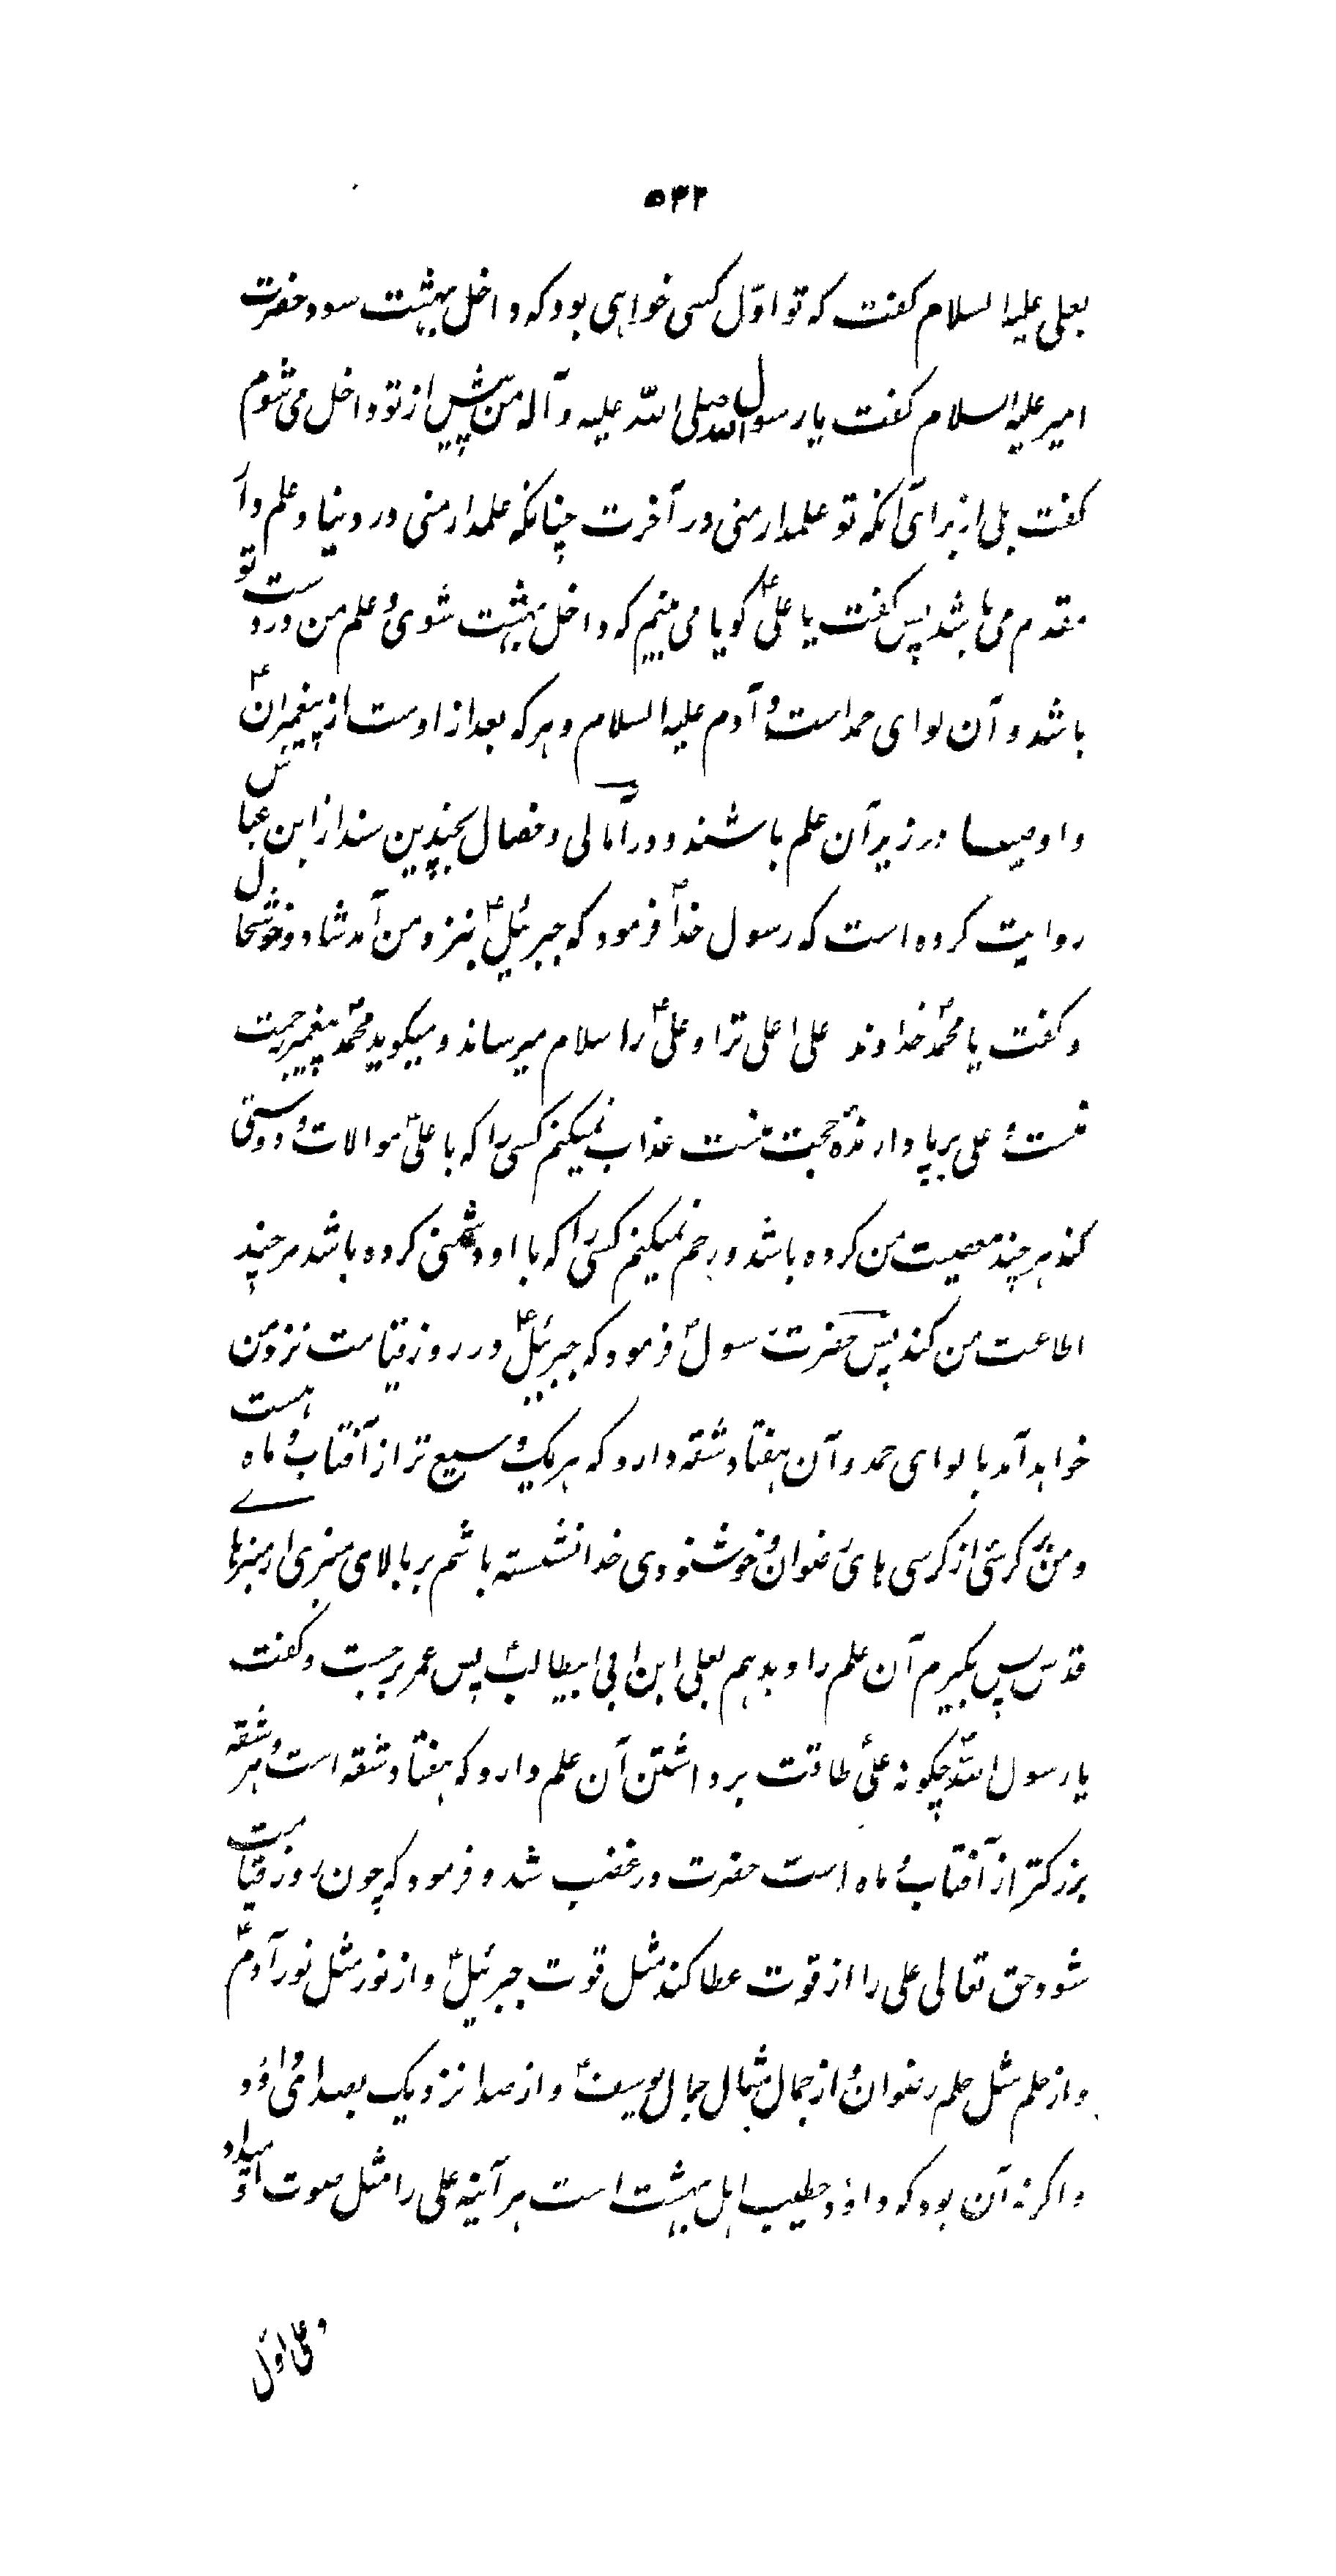 ۵۳۲
بعلی علیه السلام کفت که تو اوّل کسی خواهی بود که داخل بهشت سود حضرت
امیر علیه السلام کفت یا رسول الله صلی الله علیه و آله من پیش از تو داخل می شوم
کفت بلی از برای آنکه تو علمدار منی در آخرت چنانکه علمدار منی در دنیا و علم دا
مقدم می باشد پس کفت یا علیؑ گویا می بینم که داخل بهشت شوی و علم من در دست تو
باشد و آن لوای حمد است و آدم علیه السلام و هر که بعد از اوست از پیغمبرانؑ
و اوصیا در زیر آن علم باشند و در امالی و خصال بچندین سند از ابن عباس
روایت کرده است که رسول خداؐ فرمود که جبرئیلؑ بنزد من آمد شاد و خوشحال
و کفت یا محمدؐ خداوند علی اعلی ترا و علیؑ را سلام میرساند و میکوید محمدؐ پیغمبر رحمت
منست و علی برپا دارندهٔ حجت منست عذاب نمیکنم کسی را که با علیؑ موالات و دوستی
کند هر چند معصیت من کرده باشد و رحم نمیکنم کسی را که با او دشمنی کرده باشد هر چند
اطاعت من کند پس حضرت رسولؐ فرمود که جبرئیلؑ در روز قیامت نزد من
خواهد آمد با لوای حمد و آن هفتاد شقه دارد که هر یک وسیع تر از آفتاب و ماه هست
و من بر کرسئ از کرسی های رضوان و خوشنودی خدا نشسته باشم بر بالای منبری از منبرهای
قدس پس بگیرم آن علم را و بدهم بعلی ابن ابی ابیطالبؑ پس عمر برجست و کفت
یا رسول اللهؐ چگونه علیؑ طاقت برداشتن آن علم دارد که هفتاد شقه است و هر شقه
بزرکتر از آفتاب و ماه است حضرت در غضب شد و فرمود که چون روز قیامت
شود حق تعالی علی را از قوت عطا کند مثل قوت جبرئیلؑ و از نور مثل نور آدمؑ
و از حلم مثل حلم رضوان و از جمال مثال جمال یوسفؑ و از صدا نزدیک بصدای داؤد
و اگر نه آن بود که داؤد خطیب اهل بهشت است هر آینه علی را مثل صوت او میداد
و علی اول